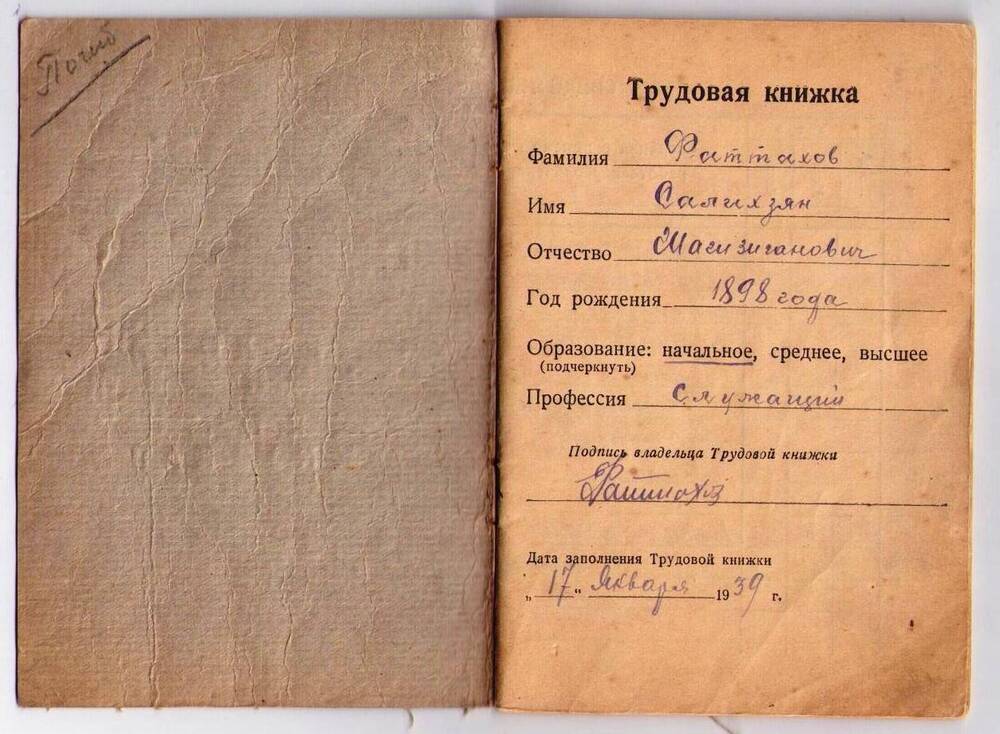 Погиб
Трудовая книжка
Фамилия Фаттахов
Имя Салихзян
Отчество
Год рождения 1898 года
Образование: начальное, среднее, высшее
(подчеркнуть)
Профессия Служащий
Подпись владельца Трудовой книжки
Дата заполнения Трудовой книжки
„17“ Января 1939 г.